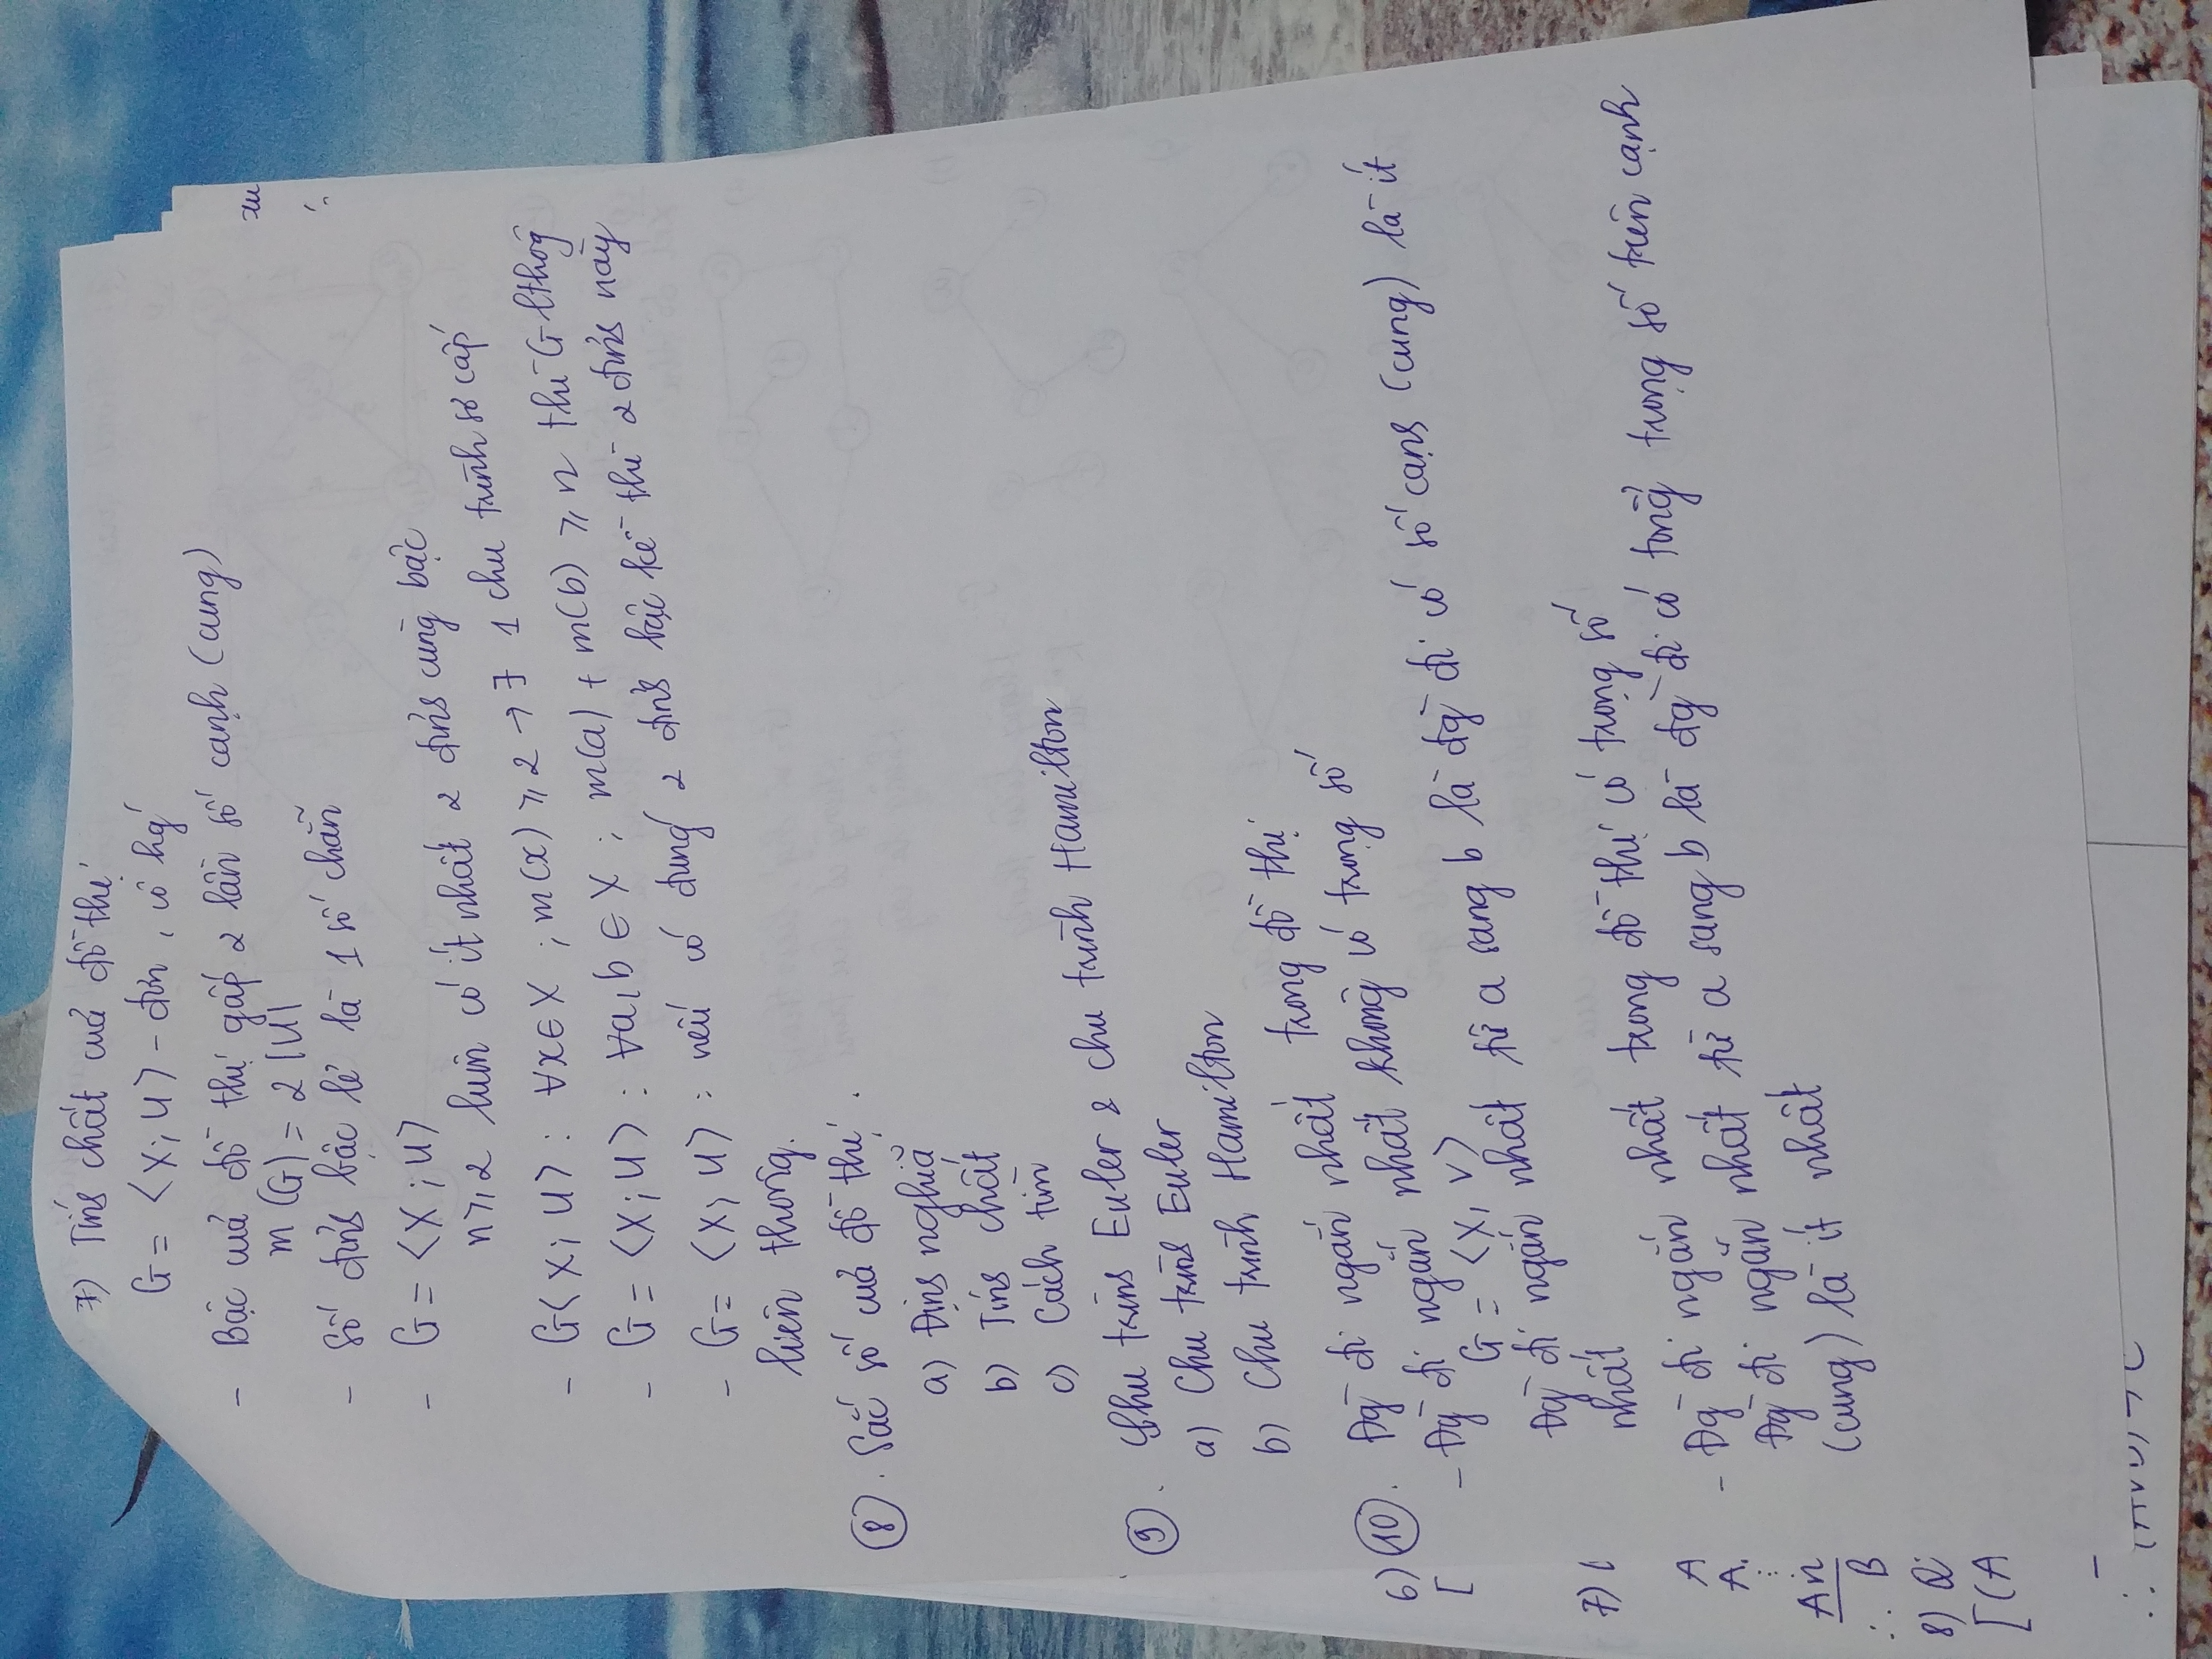 7) Tíns chất của đồ thị
G = <X; U> - đơn, vô hg'
- Bậc của đồ thị gấp 2 lần số cạnh (cung)
m (G) = 2 |U|
- Số đỉns bậc lẻ là 1 số chẵn
- G = <X; U>
n ≥ 2 luôn có ít nhất 2 đỉns cùng bậc
- G<X; U> : ∀x ∈ X ; m(x) ≥ 2 → ∃ 1 chu trình sơ cấp
- G = <X; U> : ∀a, b ∈ X ; m(a) + m(b) ≥ n thì G lthôg
- G = <X; U> : nếu có đúng 2 đỉns bậc kẻ thì 2 đỉns này
liên thông.
8. Sắc số của đồ thị.
a) Địns nghĩa
b) Tíns chất
c) Cách tìm
9. Chu trìns Euler & chu trình Hamilton
a) Chu trìns Euler
b) Chu trình Hamilton
6) 10. Đg` đi ngắn nhất trong đồ thị
[ - Đg` đi ngắn nhất không có trọng số
G = <X, V>
Đg` đi ngắn nhất từ a sang b là đg` đi có số cạns (cung) là ít
nhất
7) (
- Đg` đi ngắn nhất trong đồ thị có trọng số
Đg` đi ngắn nhất từ a sang b là đg` đi có tổng trọng số trên cạnh
(cung) là ít nhất
A
A.
⋮
An
∴ B
8) Q
[(A